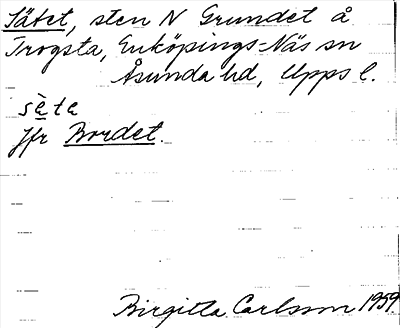 Sätet, sten N Grundet å
Trogsta, Enköpings-Näs sn
Åsunda hd, Upps l.
sète
Jfr Bordet.
Birgitta Carlsson 1959.